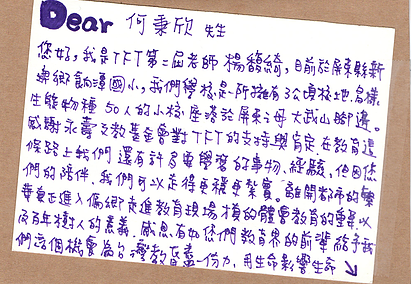 Dear 何秉欣 先生
您好,我是TFT第二屆老師楊馥綺,目前於屏東縣新
鄉餉潭國小,我們學校是一所擁有3公頃校地、多樣
生態物種、50人的小校,座落於屏東之母大武山腳邊。
感謝永壽文教基金會對TFT的支持與肯定,在教育這
條路上我們還有許多要學習的事物、經驗,但因您
們的陪伴,我們可以走得更穩更紮實。離開都市的繁
華真正進入偏鄉,走進教育現場,的體會教育的重量以
及百年樹人的意義。感恩有如您們教育界的前輩,給予我
們這個機會為台灣教育盡一份力,用生命影響生命